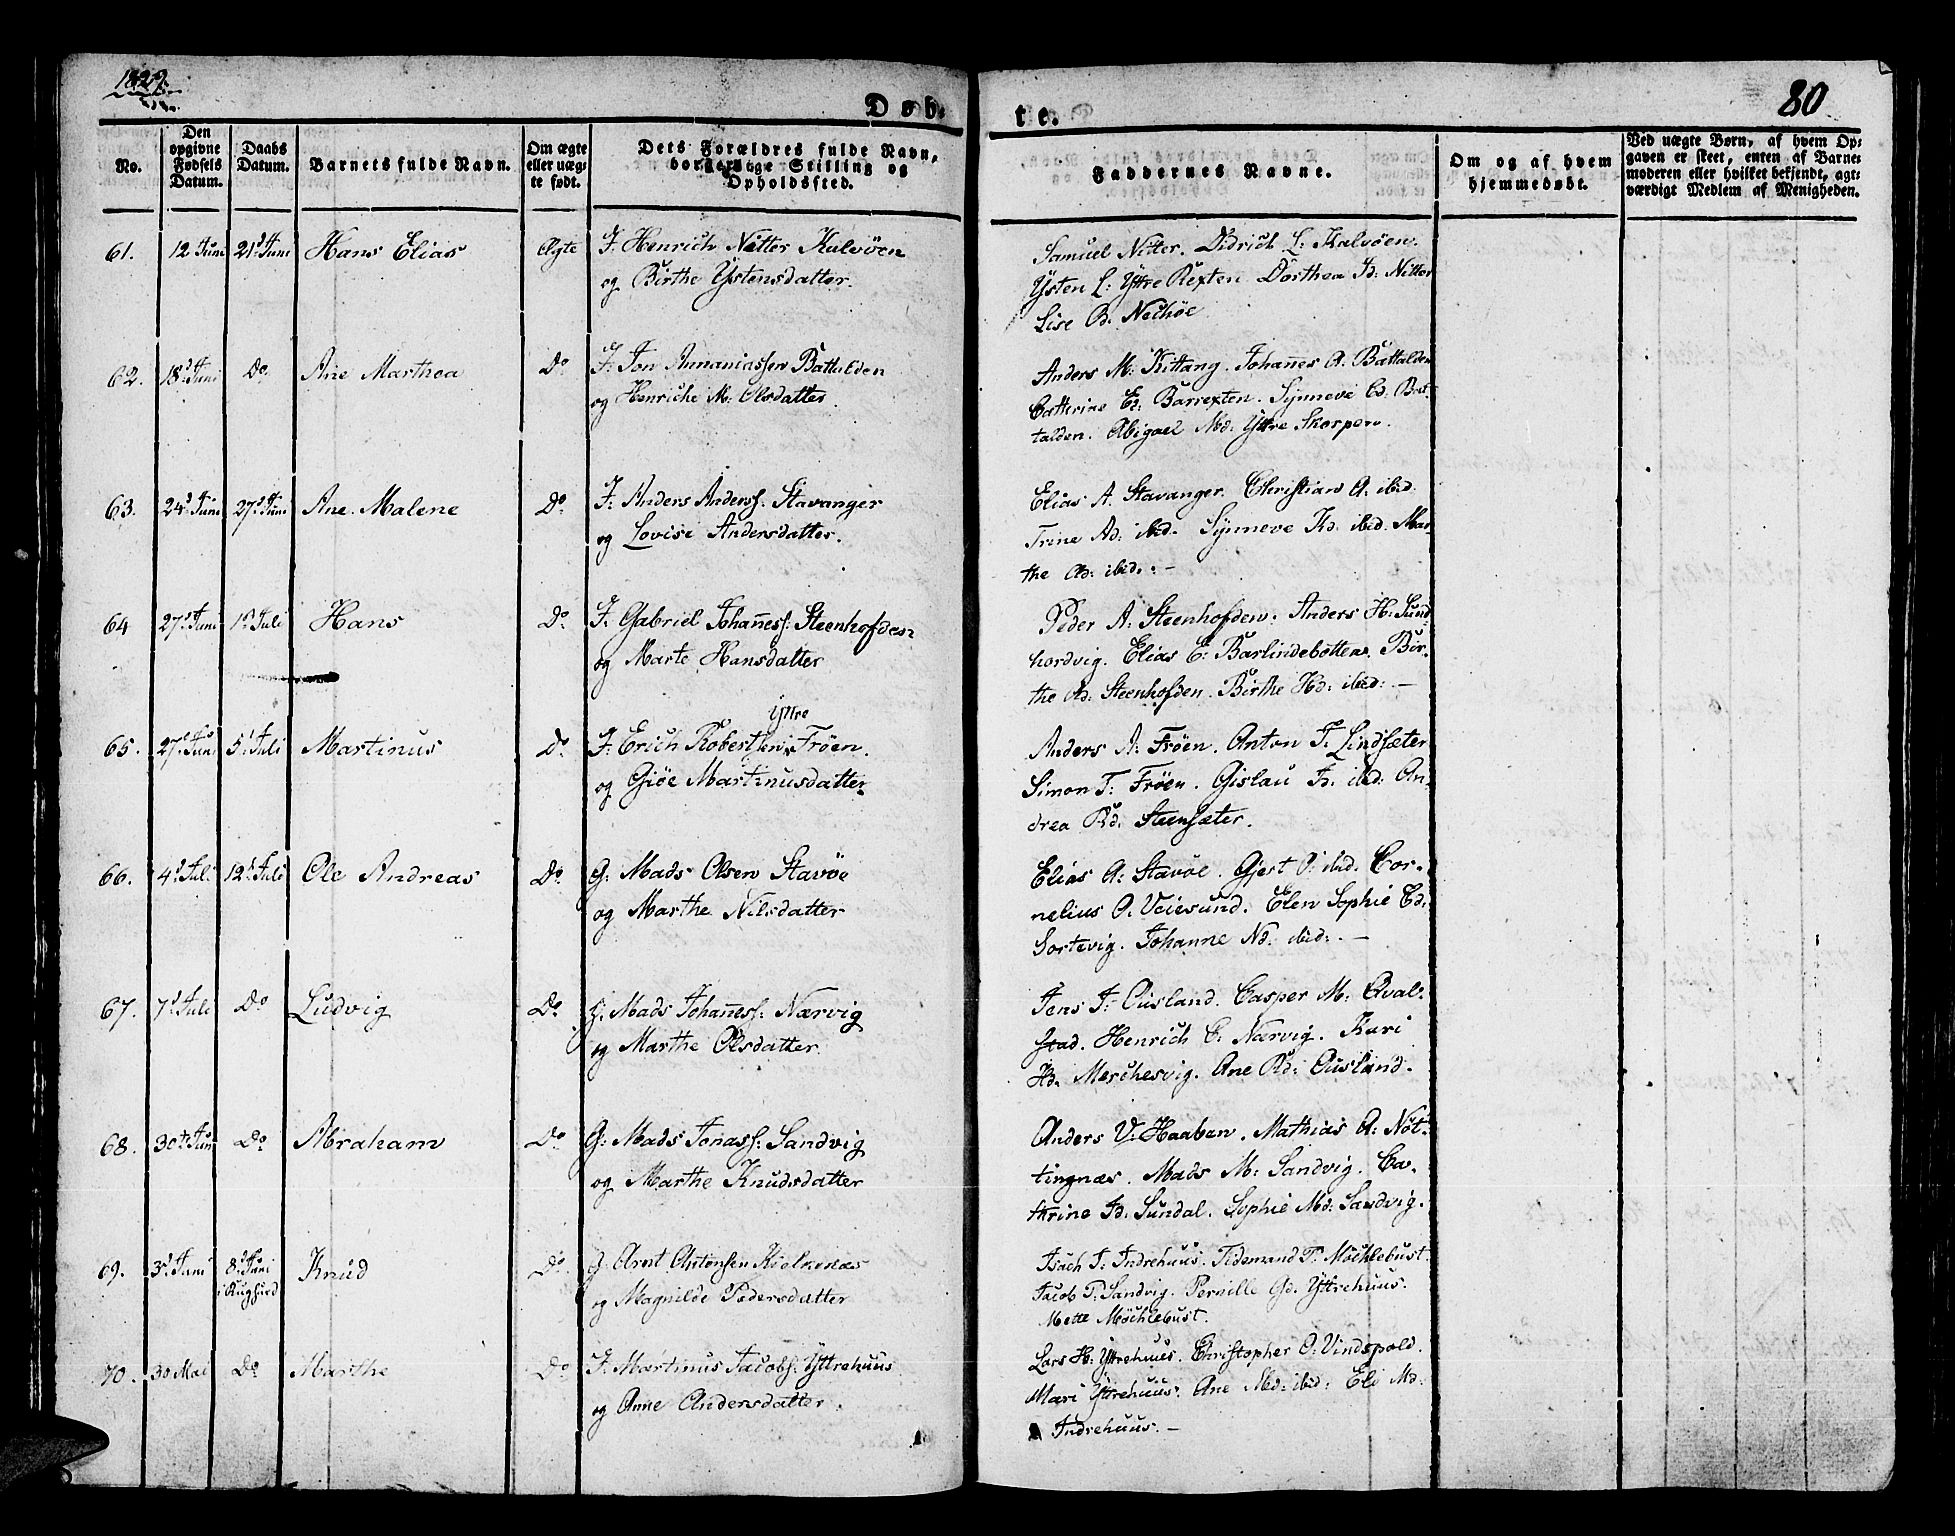 1829.
Døb-
te.
80
No.
Den opgivne Fødsels Datum.
Daabs Datum.
Barnets fulde Navn.
Om ægte eller uægte født.
Dets Forældres fulde Navn, borgerlige Stilling og Opholdsfted.
Faddernes Navne.
Om og af hvem hjemmedøbt.
Ved uægte Børn, af hvem Opgaven er skeet, enten af Barnemoderen eller hvilket bekjendt, agtværdigt Medlem af Menigheden.
61. 12 Juni 21d Juni Hans Elias Ægte F. Henrich Nitter Kalvöen
og Birthe Ystensdatter.
Samuel Nitter. Didrich L: Kalvöen.
Ysten L: Yttre Rexten. Dorthea Id: Nitter
Lise Nechöe
62. 18d Juni Do Ane Marthea Do F: Jon Annaniassen Battalden
og Henriche M: Olsdatter.
Anders M: Kittang. Johannes A: Battalden
Cathrine Ed: Barrexten. Synneve Cd: Bat-
talden. Abigael Md: Yttre Skorpen.
63. 24d Juni 27d Juni Ane Malene Do F: Anders Anders: Stavanger
og Lovise Andersdatter.
Elias A. Stavanger. Christian A: ibid.
Trine Ad: ibid. Synneve Kd: ibid: Mar-
the Ad: ibid: —
64 27d Juni 1d Juli Hans Do F. Gabriel Johannes: Steenhofden
og Marte Hansdatter
Peder A: Steenhofden. Anders H: Sund-
hordvig. Elias E: Barlindebotten. Bir-
the Ad: Steenhofden. Birthe Hd: ibid: —
65. 27d Juni 5d Juli Martinus Do F: Erich Robertsen Yttre Fröen.
og Giöe Martinusdatter
Anders A: Fröen. Anton F: Lindsæter
Simon T: Fröen. Gislau Id: ibid: An-
drea Rd: Steensæter.
66. 4d Juli 12d Juli Ole Andreas Do G: Mads Olsen Stavöe
og Marthe Nilsdatter
Elias A: Stavöe. Gjest O: ibid. Cor-
nelius O: Veiesund. Elen Sophie Ed:
Sortevig. Johanne Nd: ibid: —
67. 7d Juli Do Ludvig Do Mads Johannes: Nærvig
og Marthe Olsdatter.
Jens J: Ousland. Casper M: Qval-
stad. Henrich C: Nærvig. Kari
Hd: Merchesvig. Ane Rd: Ousland.
68. 30te Juni Do Abraham Do G: Mads Jonas: Sandvig
og Marthe Knudsdatter
Anders V: Haaben. Mathias A: Nöt-
tingnæs. Mads M: Sandvig. Ca-
thrine Id: Sundal. Sophie Md: Sandvig.
69. 3d Juni 8d Juni i Rugsund Knud Do G: Arnt Antonsen Kielkenæs
og Magnilde Pedersdatter
Isach J: Indrehuus. Tidemand P: Möchlebust.
Jacob P: Sandvig. Pernille Gd. Yttrehuus.
Mette Möchlebust.
70. 30 Mai Do Marthe Do F. Martinus Jacobs: Yttrehuus
og Anne Andersdatter.
Lars H: Yttrehuus. Christopher O: Vindspold.
Mari Yttrehuus. Ane Md: ibid: Eli Md:
Indrehuus. —